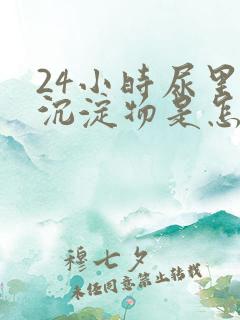 24小时尿里
沉淀物是怎
穆七夕
未经同意禁止转载